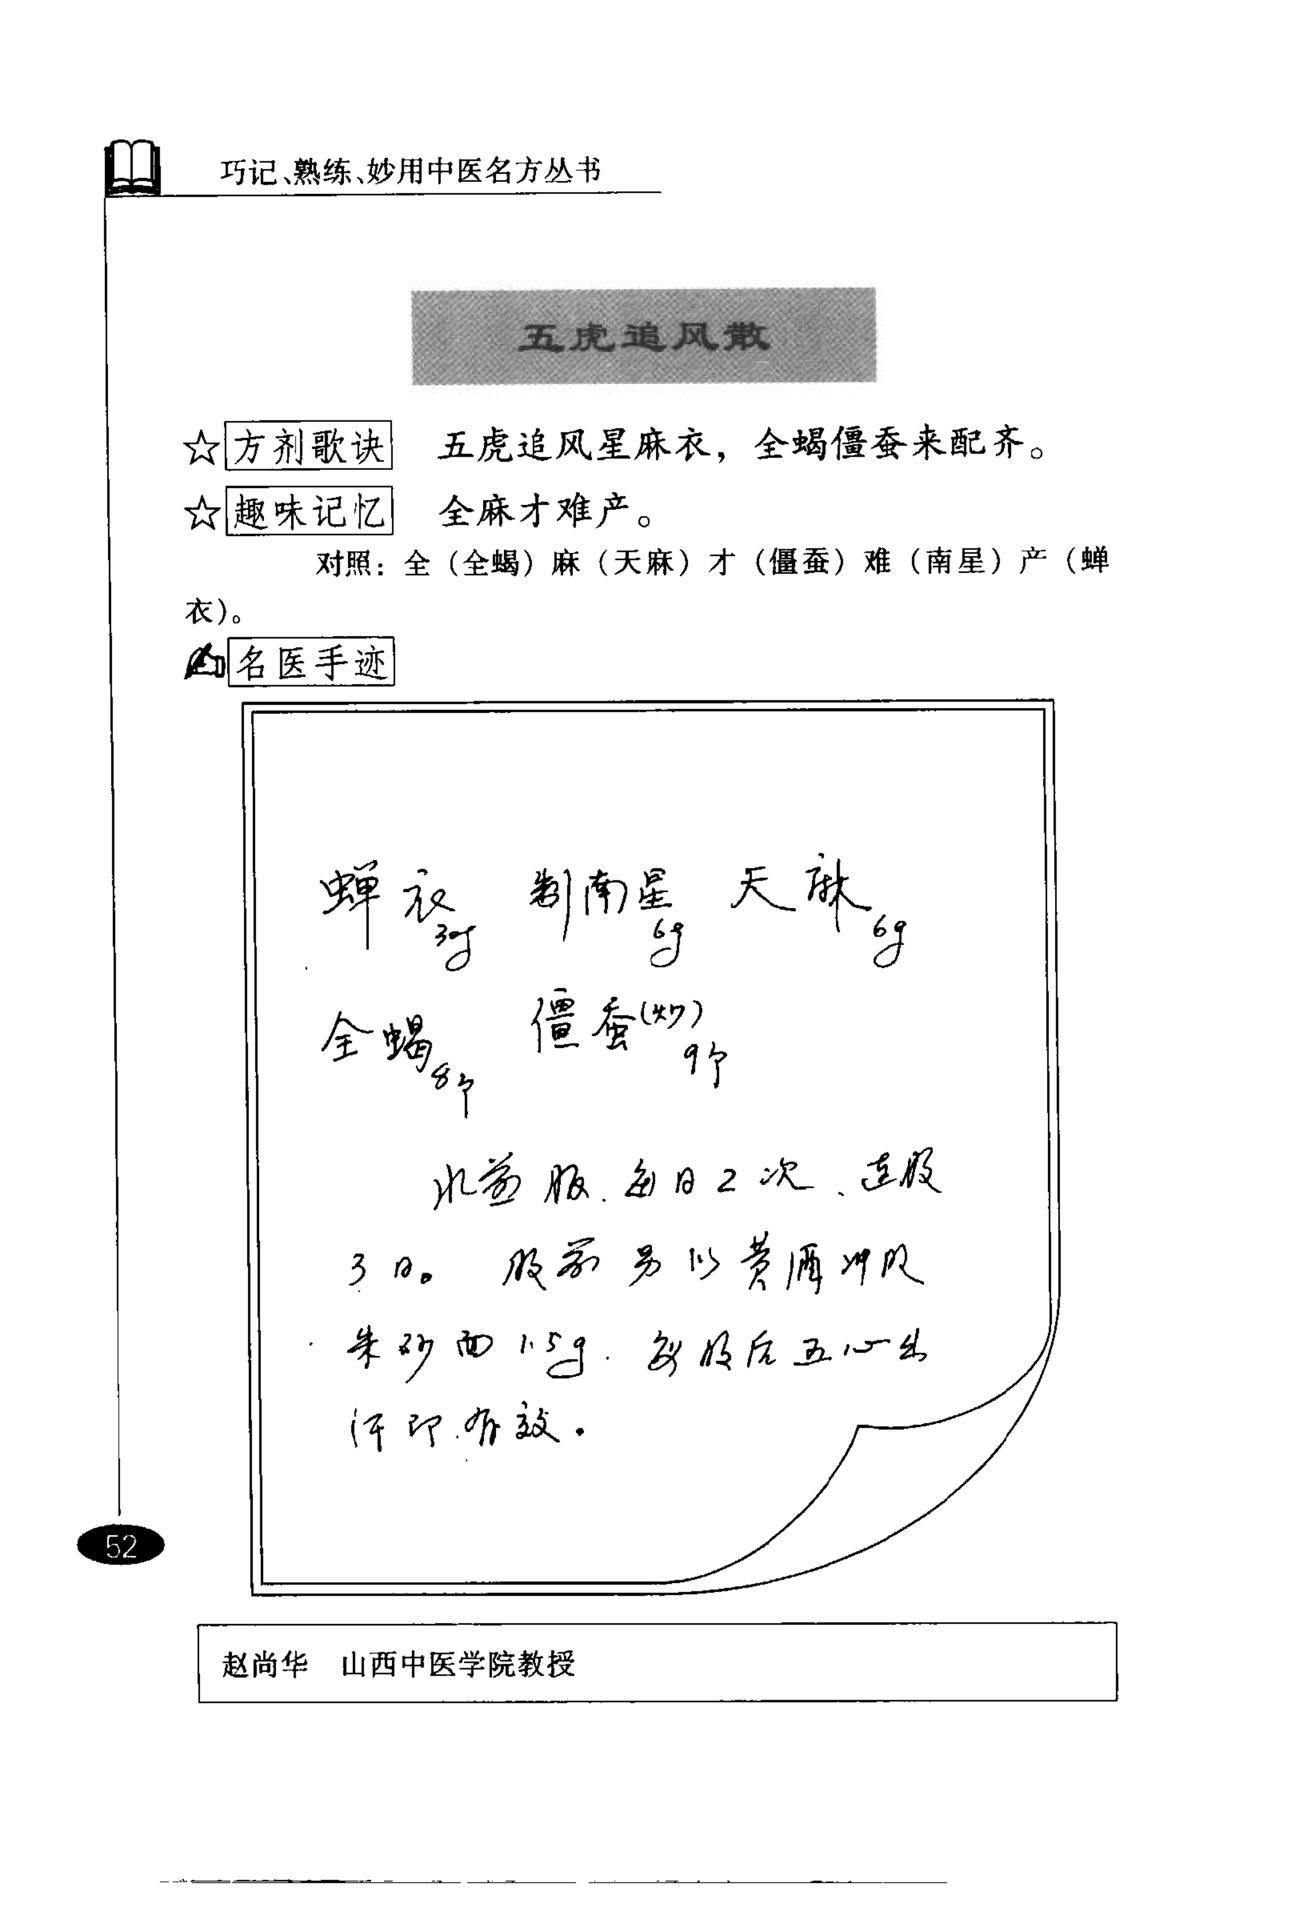 巧记、熟练、妙用中医名方丛书
五虎追风散
☆方剂歌诀 五虎追风星麻衣，全蝎僵蚕来配齐。
☆趣味记忆 全麻才难产。
对照：全（全蝎）麻（天麻）才（僵蚕）难（南星）产（蝉
衣）。
名医手迹
蝉衣30g 制南星6g 天麻6g
全蝎8个 僵蚕(炒)9个
水煎服、每日2次、连服
3日。 服前另以黄酒冲服
朱砂面1.5g. 每服后五心出
汗即有效。
52
赵尚华 山西中医学院教授